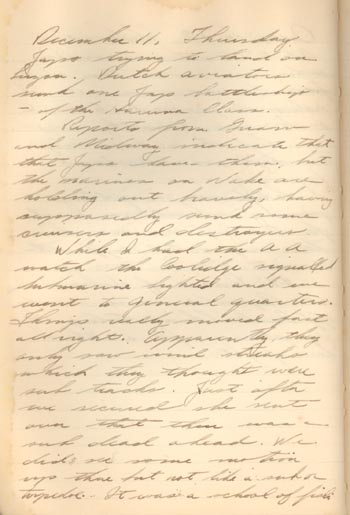 December 11, Thursday
Japs trying to land on
Luzon. Dutch aviators
sunk one Jap battleship
- of the Haruna Class.
Reports from Guam
and Midway indicate that
that Japs have them, but
the marines on Wake are
holding out bravely, having
supposedly sunk some
cruisers and destroyers
While I had the A A
watch the Coolidge signalled
submarine sighted and we
went to general quarters.
Things really moved fast
all right. Apparently they
only saw wind streaks
which they thought were
sub tracks. Just after
we secured she sent
over that there was a
sub dead ahead. We
did see some motion
up there but not like a sub or
torpedo. It was a school of fish